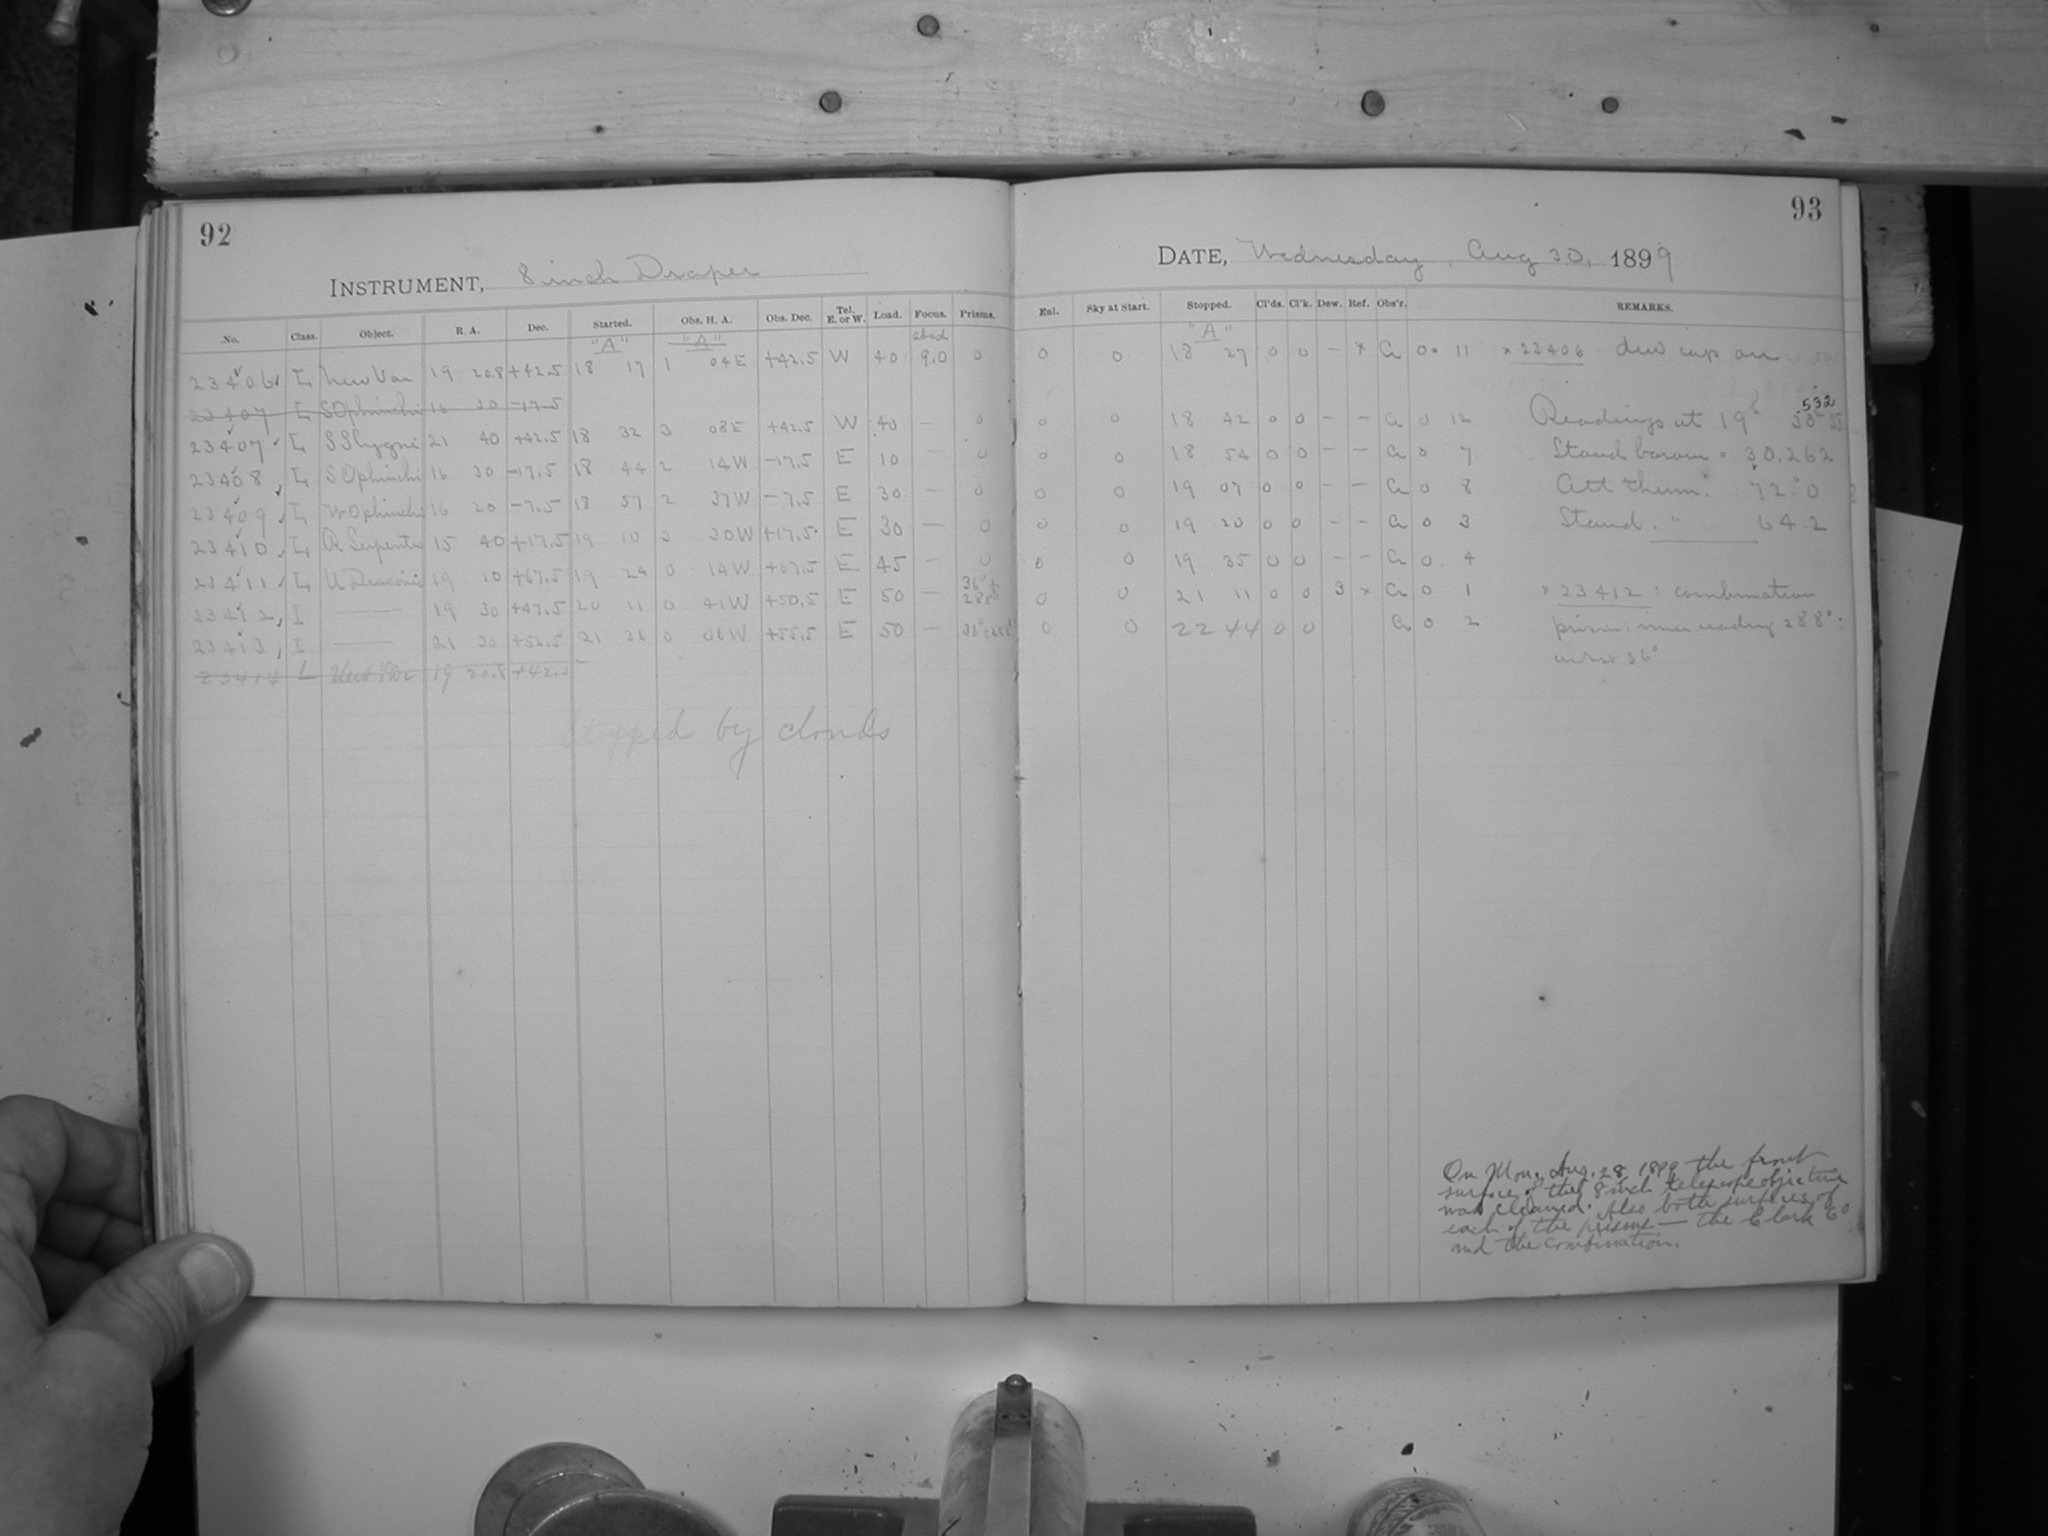 92
INSTRUMENT, 8 inch Draper
No. Class. Object. R. A. Dec. Started. Obs. H. A. Obs. Dec. Tel. E. or W. Load. Focus. Prisms.
"A" "A"
23406 L New Var 19 20.8 +42.5 18 17 1 04E +42.5 W 40 9.0 0
23407 L S Ophiuchi 16 30 -17.5
23407 L SS Cygni 21 40 +42.5 18 32 3 08E +42.5 W 40 — 0
23408 L S Ophiuchi 16 30 -17.5 18 44 2 14W -17.5 E 10 — 0
23409 L W Ophiuchi 16 20 -7.5 18 57 2 37W -7.5 E 30 — 0
23410 L R Serpentis 15 40 +17.5 19 10 3 30W +17.5 E 30 — 0
23411 L U Draconis 19 10 +67.5 19 24 0 14W +67.5 E 45 — 0
23412 I — 19 30 +47.5 20 11 0 41W +50.5 E 50 — 36° + 288°
23413 I — 21 30 +52.5 21 36 0 06W +55.5 E 50 —
23414 L New Var 19 20.8 +42.5
Stopped by clouds
93
DATE, Wednesday, Aug 30, 1899
Enl. Sky at Start. Stopped. Cl'ds. Cl'k. Dew. Ref. Obs'r. REMARKS.
"A"
0 0 18 27 0 0 — x G 0 11 x 23406 dew cap on
0 0 18 42 0 0 — — G 0 12 Readings at 19h
.532
0 0 18 54 0 0 — — G 0 7 Stand barom. 30.262
0 0 19 07 0 0 — — G 0 8 Att therm. 72.0
0 0 19 20 0 0 — — G 0 3 Stand. " 64.2
0 0 19 35 0 0 — — G 0 4
0 0 21 11 0 0 3 x G 0 1 x 23412: combination
0 0 22 44 0 0 G 0 2 prism: inner reading 288°:
outer 36°
On Mon. Aug. 28, 1899 the front
surface of the 8 inch telescope objective
was cleaned. Also both surfaces of
each of the prisms — the Clark 6°
and the combination.